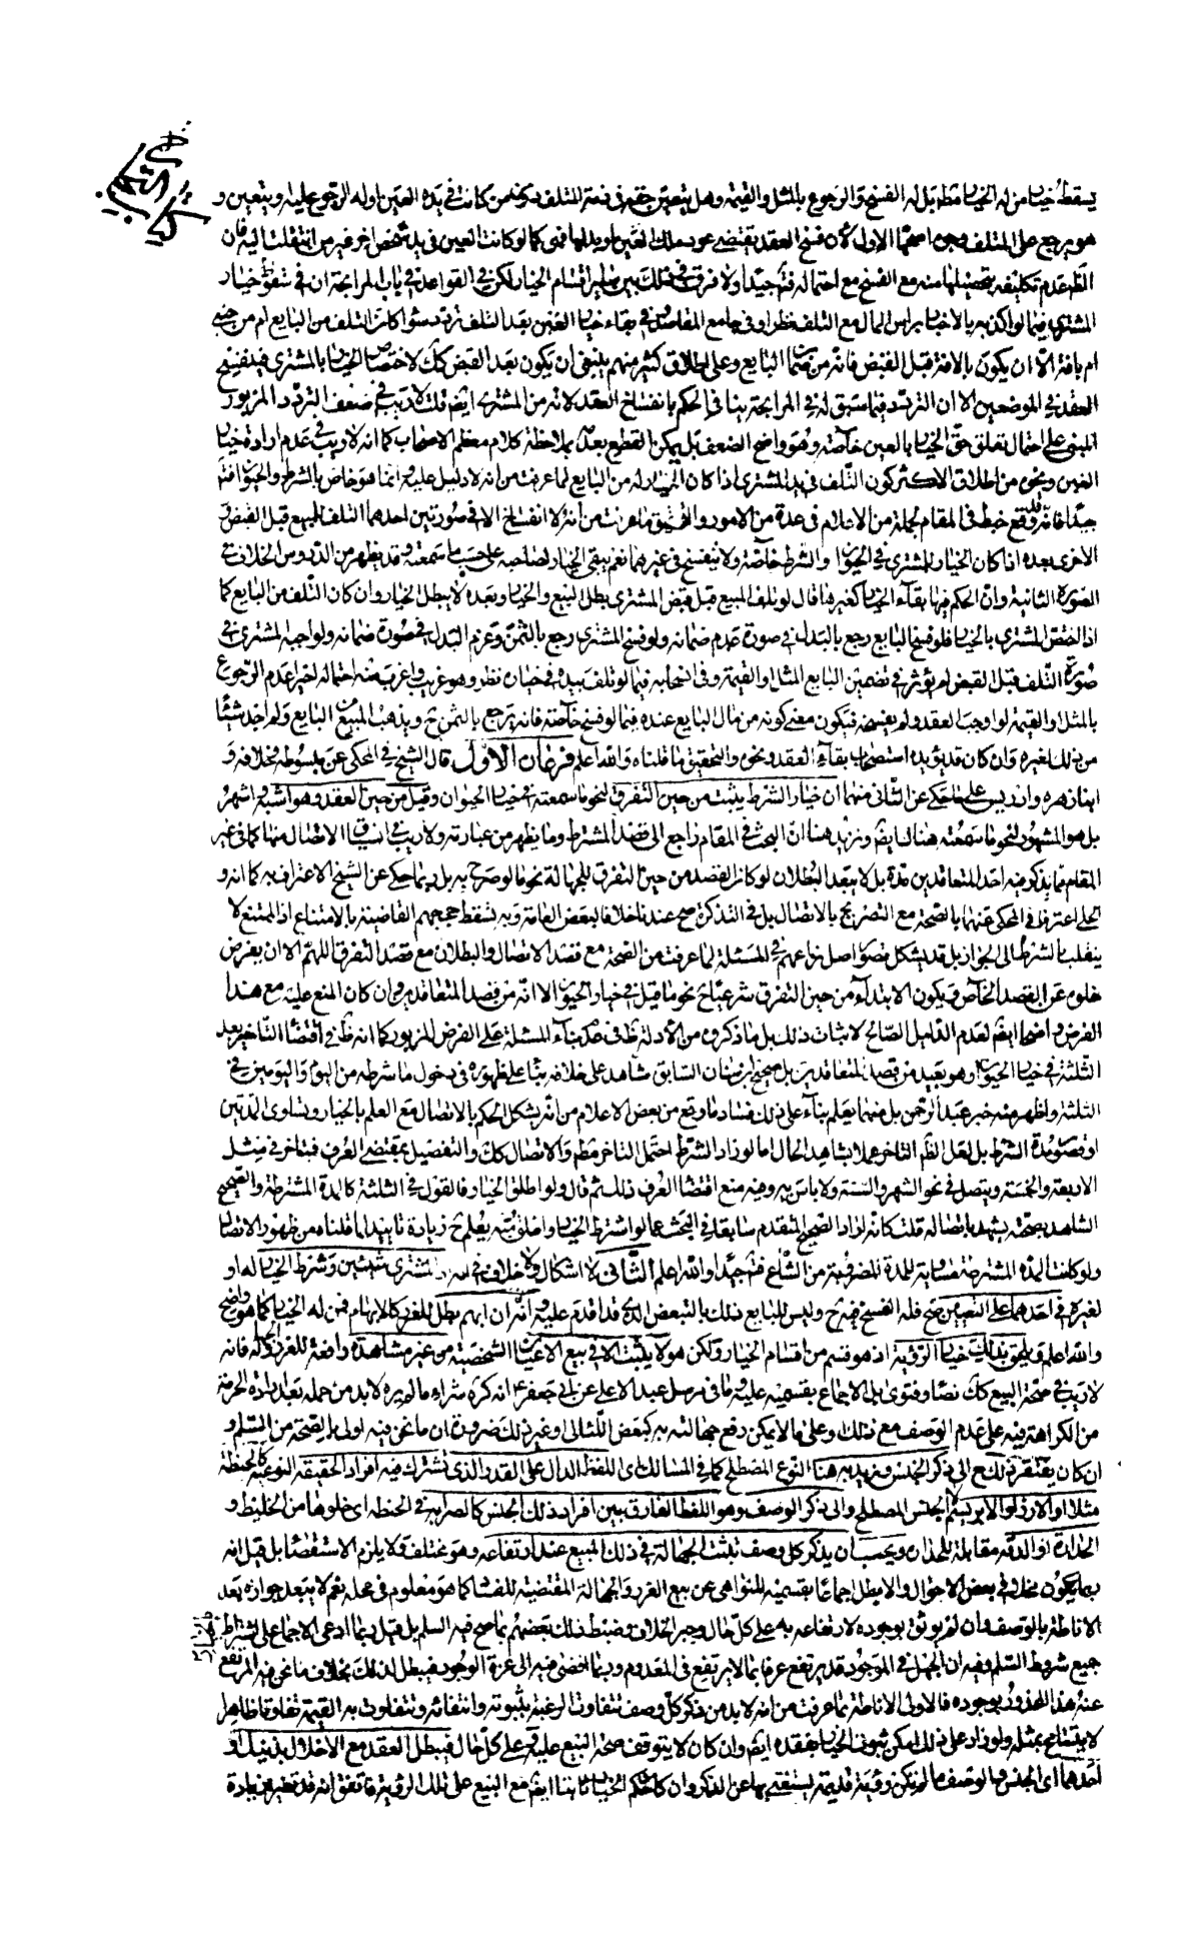 كتاب التجارة
يسقط خيار من له الخيار مط بل له الفسخ والرجوع بالمثل والقيمة وهل يتعين حقه في ذمة المتلف دون من كانت في يده العين او له الرجوع عليه ويتعين و
هو يرجع على المتلف وجهان اصحهما الاول لأن فسخ العقد يقتضي عود ملك العين او بدلها فهي كما لو كانت العين في يد شخص اخر غير من انتقلت اليه فان
الظ عدم تكليفه بتحصيلها منه مع الفسخ مع احتماله فت‍ جيدا ولا فرق في ذلك بين سائر اقسام الخيار لكن في القواعد في باب المرابحة ان في سقوط خيار
المشتري فيما لو اكذبه بالاخبار براس المال مع التلف نظرا وفي جامع المقاصد في بقاء خيار الغبن بعد التلف تردد سواء كان التلف من البايع ام من اجنبي
ام بافة الا ان يكون بالافة قبل القبض فانه من ضمان البايع وعلى اطلاق كثير منهم ينبغي ان يكون بعد القبض كك لاختصاص الخيار بالمشتري فينفسخ
العقد في الموضعين الا ان التردد فيما سبق له في المرابحة ينافي الحكم بانفساخ العقد لانه من المشتري ايض قلت لا ريب في ضعف التردد المزبور
المبني على احتمال تعلق حق الخيار بالعين خاصة وهو واضح الضعف بل يمكن القطع بعدمه بملاحظة كلام معظم الاصحاب كما انه لا ريب في عدم ارادة خيار
الغبن ونحوه من اطلاق الاكثر كون التلف في يد المشتري اذا كان الخيار له من البايع لما عرفت من انه لا دليل عليه وانما هو خاص بالشرط والحيوان فت‍
جيدا فانه قد وقع خبط في المقام لجملة من الاعلام في عدة من الامور والتحقيق ما عرفت من انه لا انفساخ الا في صورتين احدهما التلف للمبيع قبل القبض و
الاخرى بعده اذا كان الخيار للمشتري في الحيوان والشرط خاصة ولا ينفسخ في غيرهما نعم يبقى الخيار لصاحبه على حسب ما سمعته وقد يظهر من الدروس الخلاف في
الصورة الثانية وان الحكم فيها بقاء الخيار كغيرها قال لو تلف المبيع قبل قبض المشتري بطل البيع والخيار وبعده لا يبطل الخيار وان كان التلف من البايع كما
اذا اختص المشتري بالخيار فلو فسخ البايع رجع بالبدل في صورة عدم ضمانه ولو فسخ المشتري رجع بالثمن وغرم البدل في صورة ضمانه ولو اوجبه المشتري في
صورة التلف قبل القبض لم يؤثر في تضمين البايع المثل او القيمة وفي انسحابه فيما لو تلف بيده في خياره نظر وهو غريب واغرب منه احتماله اخيرا عدم الرجوع
بالمثل او القيمة لو اوجب العقد ولم يفسخه فيكون معنى كونه من مال البايع عنده فيما لو فسخ خاصة فانه يرجع بالثمن ح ويذهب المبيع من البايع ولم اجد شيئا
من ذلك لغيره وان كان قد يؤيده استصحاب بقاء العقد ونحوه والتحقيق ما قلناه والله اعلم فرعان الاول قال الشيخ في المحكى عن مبسوطه وخلافه و
ابنا زهرة وادريس على ما حكي عن الثاني منهما ان خيار الشرط يثبت من حين التفرق لنحو ما سمعته في خيار الحيوان وقيل من حين العقد وهو اشبه واشهر
بل هو المشهور لنحو ما سمعته هناك ايض ونزيد هنا ان البحث في المقام راجع الى قصد المشترط وما يظهر من عبارته ولا ريب في انسياق الاتصال منها كما في غير
المقام مما يذكر فيه احد المتعاقدين مدة بل لا يبعد البطلان لو كان القصد من حين التفرق للجهالة نحو ما لو صرح به بل ربما حكي عن الشيخ الاعتراف به كما انه و
الحلي اعترفا في المحكى عنهما بالصحة مع التصريح بالاتصال بل في التذكرة صح عندنا خلافا لبعض العامة وبه تسقط حججهم القاضية بالامتناع اذ الممتنع لا
ينقلب بالشرط الى الجواز بل قد يشكل تصور اصل نزاعهم في المسئلة لما عرفت من الصحة مع قصد الاتصال والبطلان مع قصد التفرق اللهم الا ان يفرض
خلوه عن القصد الخاص فيكون الابتداء من حين التفرق شرعيا ح نحو ما قيل في خيار الحيوان الا انه من قصد المتعاقدين وان كان المنع عليه مع هذا
الفرض واضحا ايض لعدم الدليل الصالح لاثبات ذلك بل ما ذكروه من الأدلة ظ في عدم بناء المسئلة على الفرض المزبور كما انه ظ في اقتضاء التاخير بعد
الثلثة في خيار الحيوان وهو بعيد من قصد المتعاقدين بل صحيح ابن سنان السابق شاهد على خلافه بناء على ظهوره في دخول ما شرطه من اليوم واليومين في
الثلثة واظهر منه خبر عبد الرحمن بل منهما يعلم بناء على ذلك فساد ما وقع من بعض الاعلام من انه يشكل الحكم بالاتصال مع العلم بالخيار وتساوي المدتين
او قصور مدة الشرط بل لعل الظ التاخر عملا بشاهد الحال اما لو زاد الشرط احتمل التاخر مط والاتصال كك والتفصيل بمقتضى العرف فيتاخر في مثل
الاربعة والخمسة ويتصل في نحو الشهر والسنة ولا باس به وفيه منع اقتضاء العرف ذلك ثم قال ولو اطلق الخيار فالقول في الثلثة كالمدة المشترطة والصحيح
الشاهد بصحته يشهد باتصاله قلت كانه اراد الصحيح المتقدم سابقا في البحث عما لو اشترط الخيار واطلق ومنه يعلم ح زيادة تاييد لما قلناه من ظهور الاتصال
ولو كانت المدة المشترطة مشابهة للمدة المضروبة من الشارع فت‍ جيدا والله اعلم الثاني لا اشكال ولا خلاف في انه اذا اشترى شيئين وشرط الخيار له او
لغيره في احدهما على التعيين صح فله الفسخ فيه ح وليس للبايع ذلك بالتبعض الذي قد اقدم عليه وانه ان ابهم بطل للغرر كالابهام فمن له الخيار كما هو واضح
والله اعلم ويلحق بذلك خيار الرؤية اذ هو قسم من اقسام الخيار ولكن هو لا يثبت الا في بيع الاعيان الشخصية من غير مشاهدة رافعة للغرر كله فانه
لا ريب في صحة البيع كك نصا وفتوى بل الاجماع بقسميه عليه وما في مرسل عبد الاعلى عن ابي جعفر ع انه كره شراء ما لم يره لا بد من حمله بعد ارادة الحرمة
من الكراهة فيه على عدم الوصف مع ذلك وعلى ما لا يمكن رفع جهالته به كبعض اللئالي وغير ذلك ضرورة ان ما نحن فيه اولى بالصحة من السلم و
ان كان يفتقر ذلك الى ذكر الجنس ونريد به هنا النوع المصطلح كما في المسالك اي اللفظ الدال على القدر الذي تشترك فيه افراد الحقيقة النوعية كالحنطة
مثلا او الارز او الابريسم لا الجنس المصطلح والى ذكر الوصف وهو اللفظ الفارق بين افراد ذلك الجنس كالصرابة في الحنطة اي خلوها من الخليط و
الحدارة او الدقة مقابلة للحدارة ويجب ان يذكر كل وصف تثبت الجهالة في ذلك المبيع عند ارتفاعه وهو مختلف ولا يلزم الاستقصاء بل قيل انه
ربما يكون مخلا في بعض الاحوال والا بطل اجماعا بقسميه للنواهي عن بيع الغرر والجهالة المقتضية للفساد كما هو معلوم في محله نعم لا يبعد جوازه بعد
الاناطة بالوصف وان لم يوثق بوجوده لارتفاعه به على كل حال وجبر الخلاف وضبط ذلك بعضهم بما صح فيه السلم بل قيل ربما ادعي الاجماع على اشتراط
جميع شروط السلم وفيه ان الجهل في الموجود قد يرتفع عرفا بما لا يرتفع في المعدوم وربما افضى فيه الى عزة الوجود فيبطل لذلك بخلاف ما نحن فيه المرتفع
عنه هذا المحذور بوجوده فالاولى الاناطة بما عرفت من انه لا بد من ذكر كل وصف تتفاوت الرغبة بثبوته وانتفائه وتتفاوت به القيمة تفاوتا ظاهرا
لا يتسامح بمثله ولو زاد على ذلك امكن ثبوت الخيار بفقده ايض وان كان لا يتوقف صحة البيع عليه وعلى كل حال فيبطل العقد مع الاخلال بذينك او
احدهما اي الجنس والوصف ما لم يكن رؤية قديمة يستغني بها عن الذكر وان كان حكم الخيار ثابتا ايض مع البيع على تلك الرؤية فاتفق انه قد تغير عن زيادة